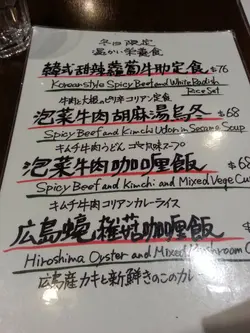 冬日限定
溫かい栄養食
韓式甜辣蘿蔔牛肋定食 $76
Korean style Spicy Beef and White Radish
Rice Set
牛肉と大根のピリ辛コリアン定食
泡菜牛肉胡麻湯烏冬 $68
Spicy Beef and Kimchi Udon in Sesame Soup
キムチ牛肉うどん ゴマ風味スープ
泡菜牛肉咖喱飯 $68
Spicy Beef and Kimchi and Mixed Vege Cu
キムチ牛肉コリアンカレーライス
広島蠔雜菇咖喱飯 $
Hiroshima Oyster and Mixed Mushroom C
広島産カキと新鮮きのこのカレ